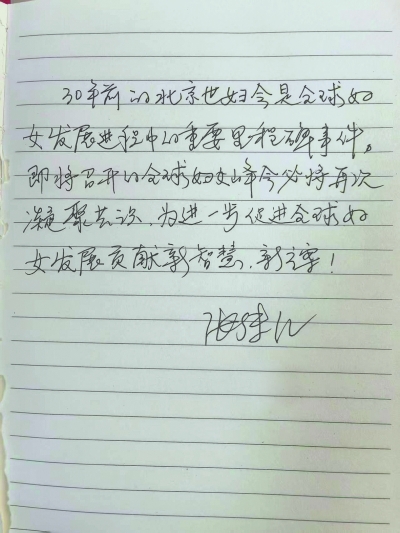 30年前的北京世妇会是全球妇
女发展进程中的重要里程碑事件。
即将召开的全球妇女峰会必将再次
凝聚共识，为进一步促进全球妇
女发展贡献新智慧、新方案！